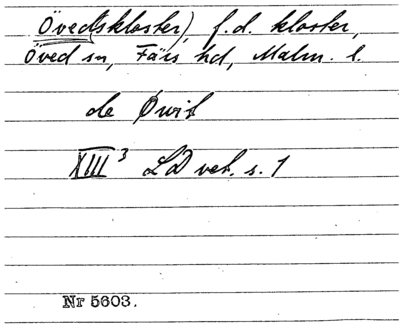 Öved(skloster), f.d. kloster,
Öved sn, Färs hd, Malm. l.
de Øwit
XIII³ LD vet. s. 1
Nr 5603.